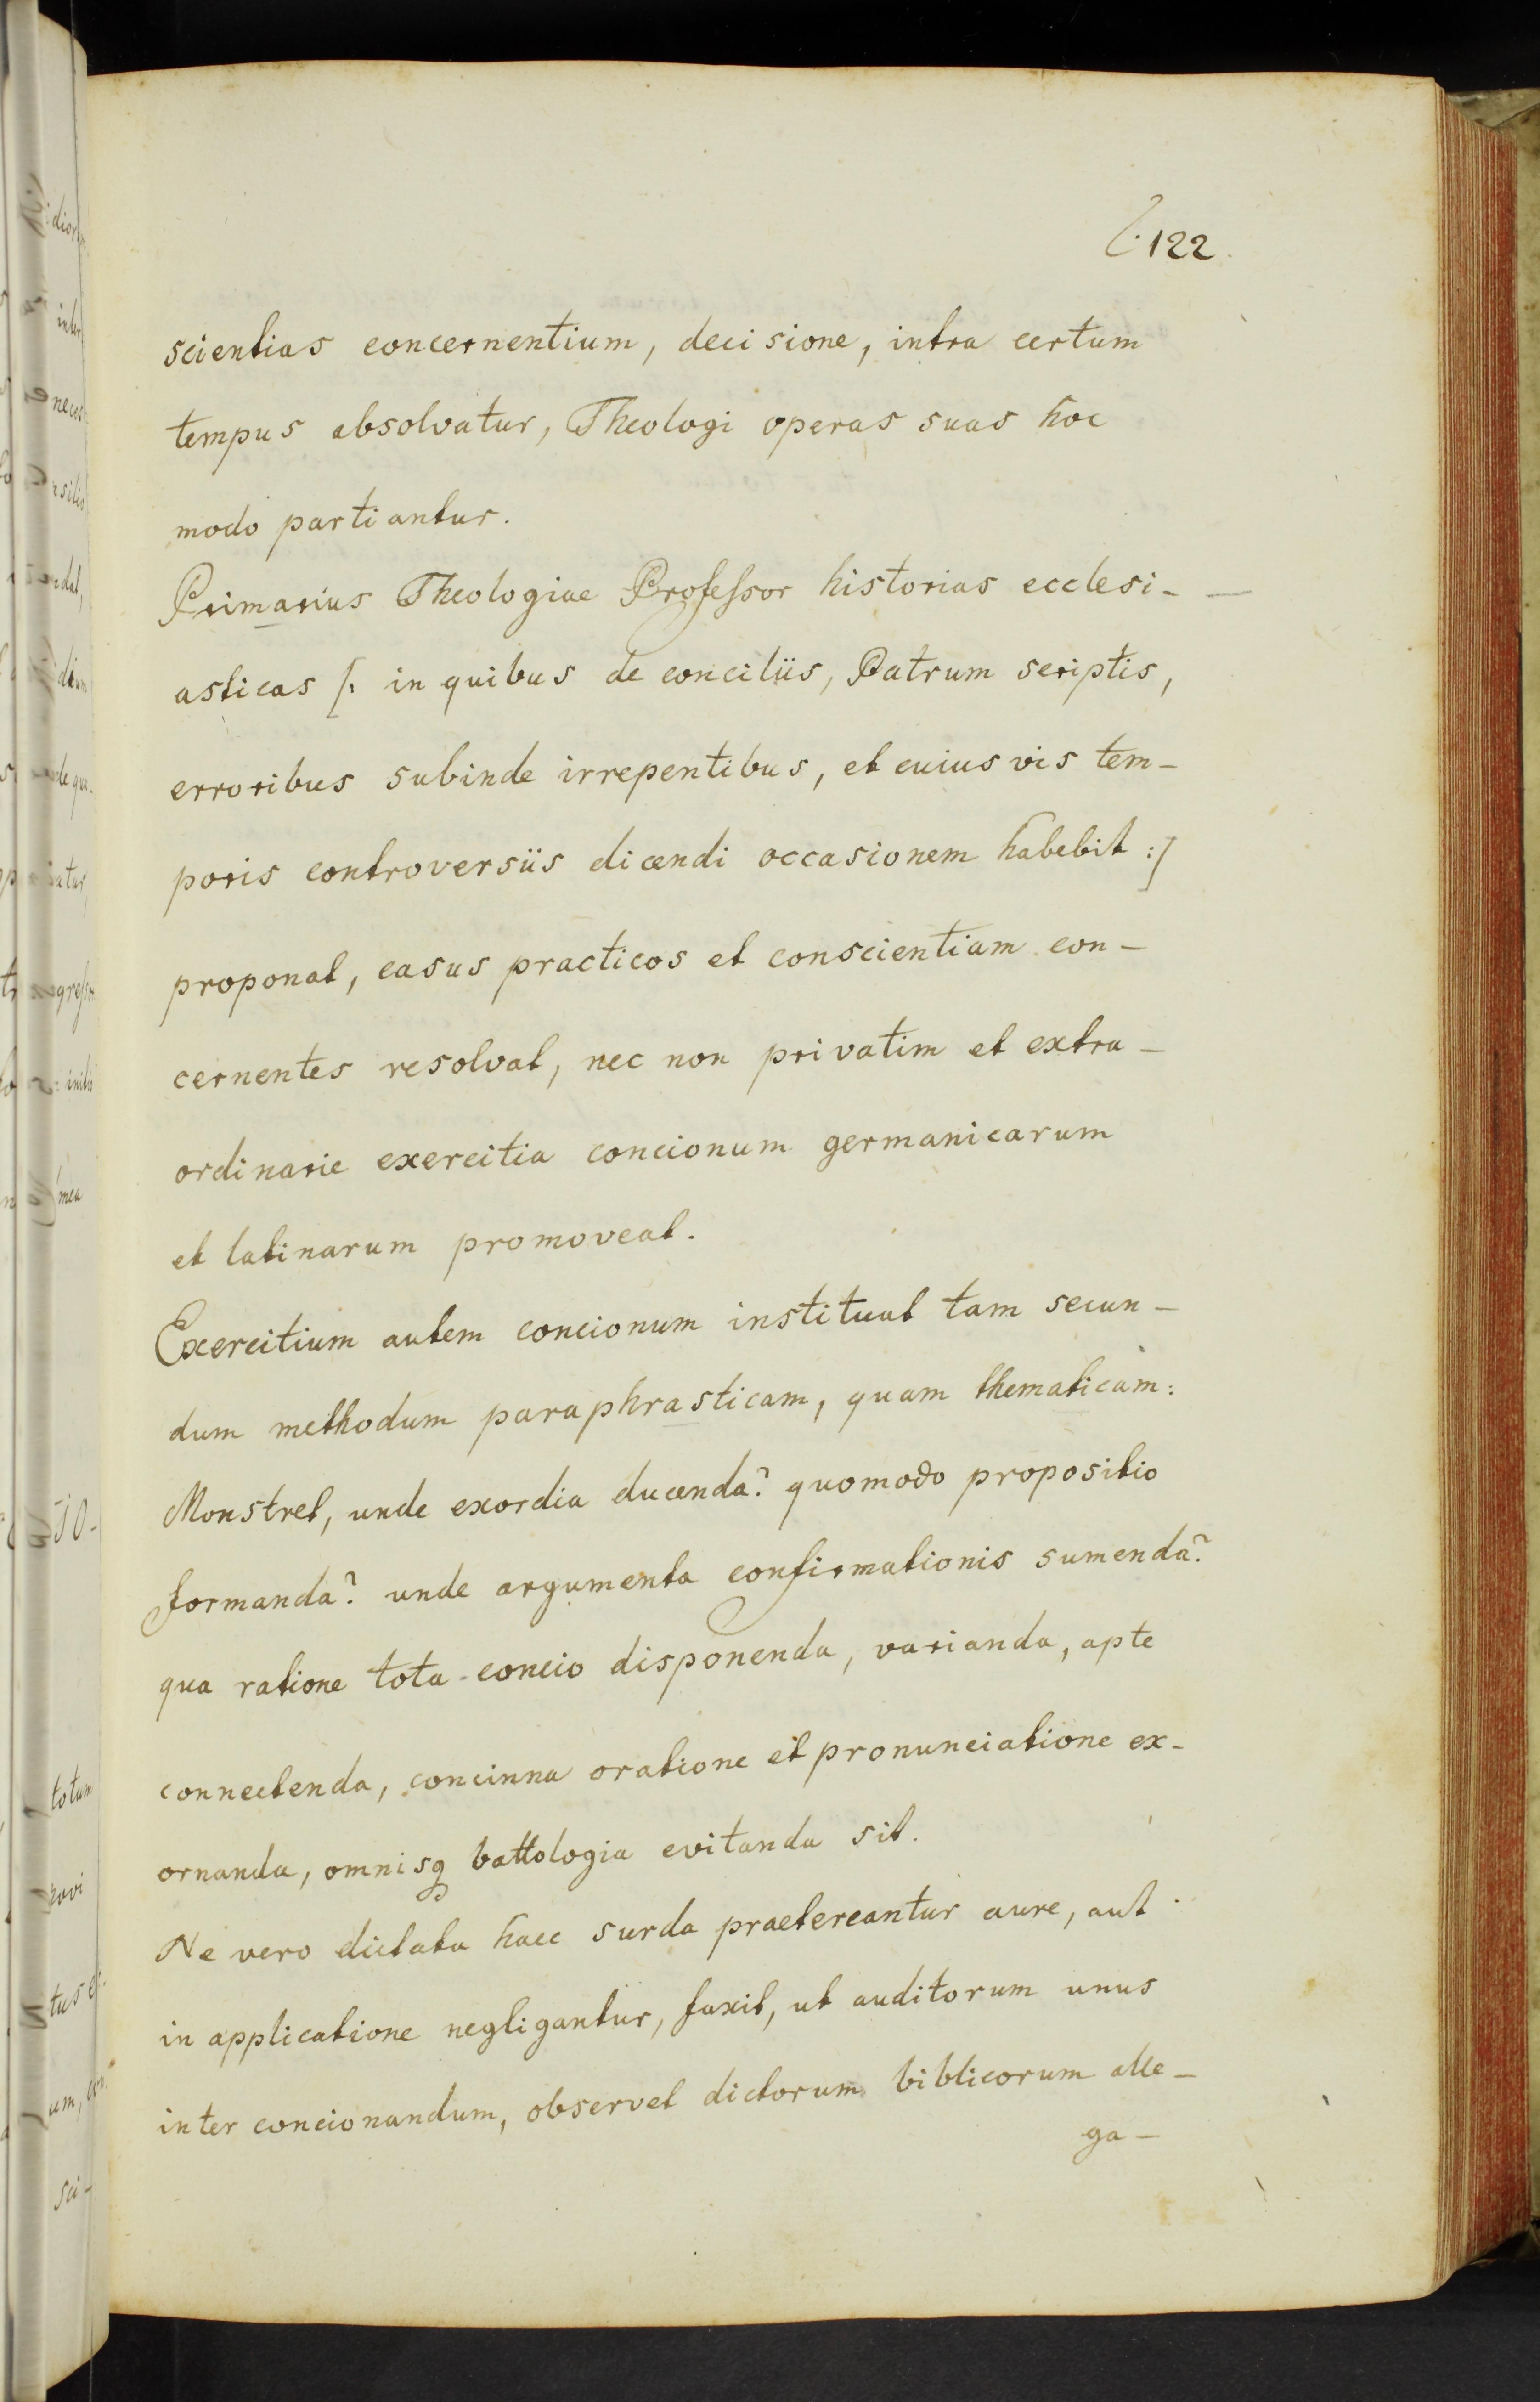 122.
scientias concernentium, decisione, intra certum
tempus absolvatur, Theologi operas suas hoc
modo partiantur.
Primarius Theologiae Professor historias ecclesi-
asticas [: in quibus de conciliis, Patrum scriptis,
erroribus subinde irrepentibus, et cuiusvis tem-
poris controversiis dicendi occasionem habebit :]
proponat, casus practicos et conscientiam con-
cernentes resolvat, nec non privatim et extra-
ordinarie exercitia concionum germanicarum
et latinarum promoveat.
Exercitium autem concionum instituat tam secun-
dum methodum paraphrasticam, quam thematicam:
Monstret, unde exordia ducenda? quomodo propositio
formanda? unde argumenta confirmationis sumenda?
qua ratione tota concio disponenda, varianda, apte
connectenda, concinna oratione et pronunciatione ex-
ornanda, omnisq battologia evitanda sit.
Ne vero dictata haec surda praetereantur aure, aut
in applicatione negligantur, faxit, ut auditorum unus
inter concionandum, observet dictorum biblicorum alle-
ga-